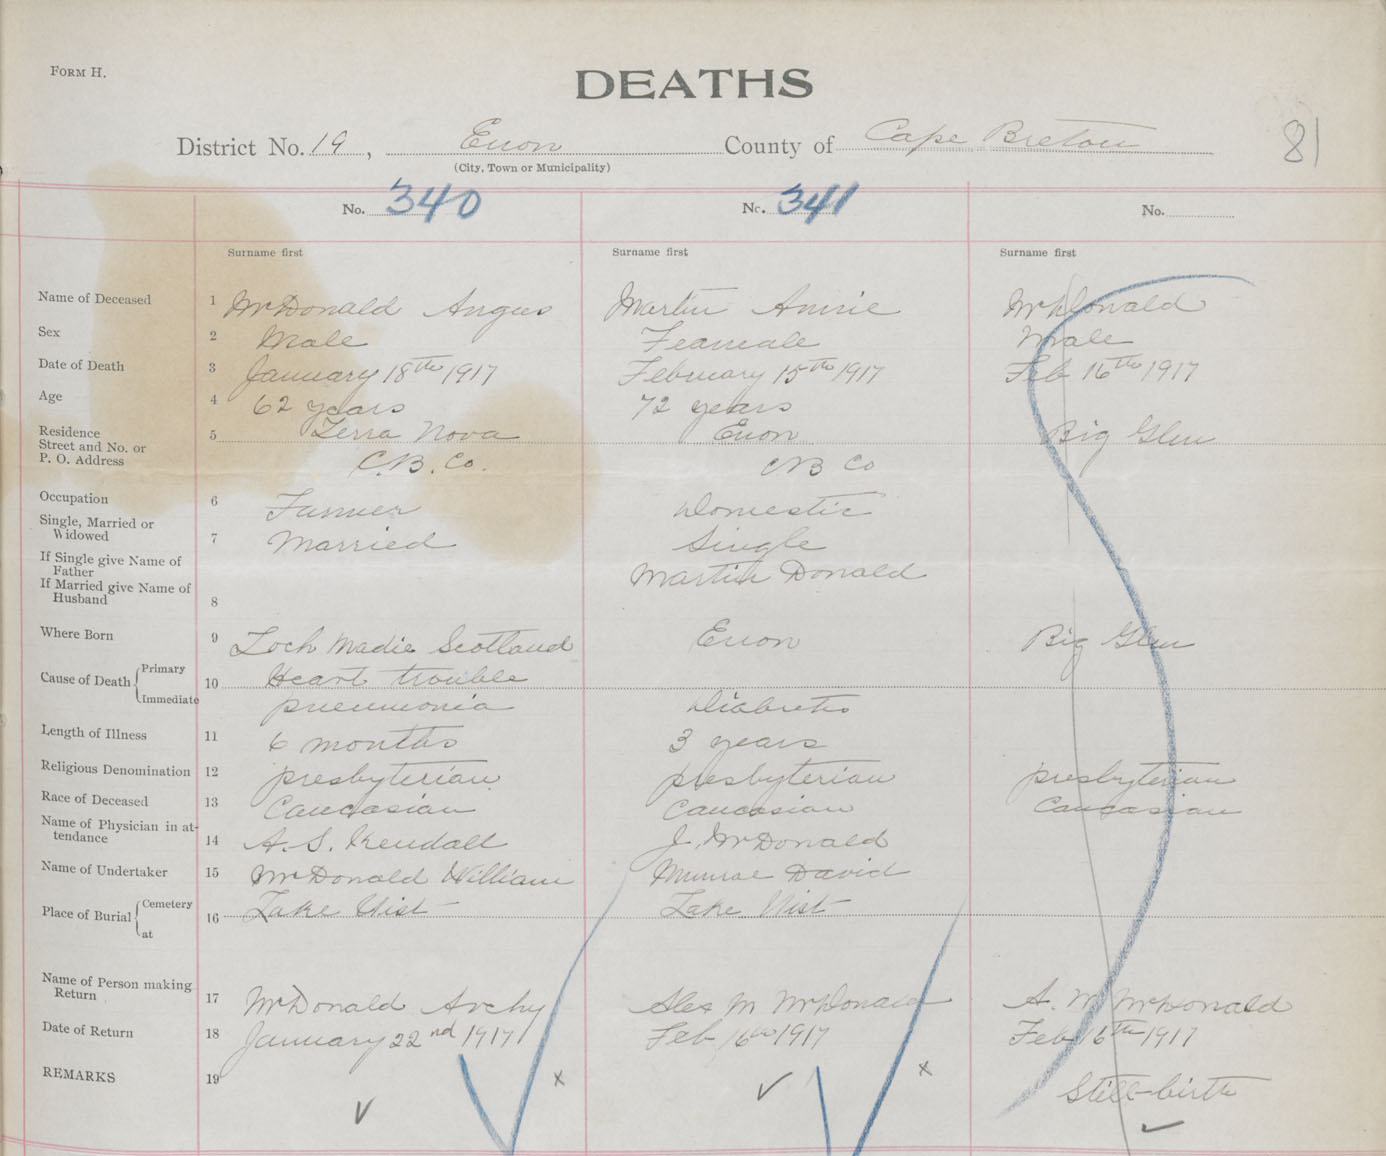 FORM H.
DEATHS
81
District No. 19, Enon County of Cape Breton
(City, Town or Municipality)
No. 340 No. 341 No.
Surname first Surname first Surname first
Name of Deceased 1 McDonald Angus Martin Annie McDonald
Sex 2 Male Feamale Male
Date of Death 3 January 18th 1917 February 15th 1917 Feb 16th 1917
Age 4 62 years 72 years
Residence
Street and No. or
P. O. Address
5 Terra Nova Enon Big Glen
C.B. Co. CB Co
Occupation 6 Farmer Domestic
Single, Married or
Widowed
7 Married Single
If Single give Name of
Father
Martin Donald
If Married give Name of
Husband
8
Where Born 9 Loch Madie Scotland Enon Big Glen
Cause of Death Primary 10 Heart trouble
Immediate pneumonia Diabetis
Length of Illness 11 6 months 3 years
Religious Denomination 12 presbyterian presbyterian presbyterian
Race of Deceased 13 Caucasian Caucasian Caucasian
Name of Physician in at-
tendance
14 A. S. Kendall J. McDonald
Name of Undertaker 15 McDonald William Munroe David
Place of Burial Cemetery 16 Lake Uist Lake Uist
at
Name of Person making
Return
17 McDonald Archy Alex M McDonald A. M McDonald
Date of Return 18 January 22nd 1917 Feb 16th 1917 Feb 16th 1917
REMARKS 19 Still-birth